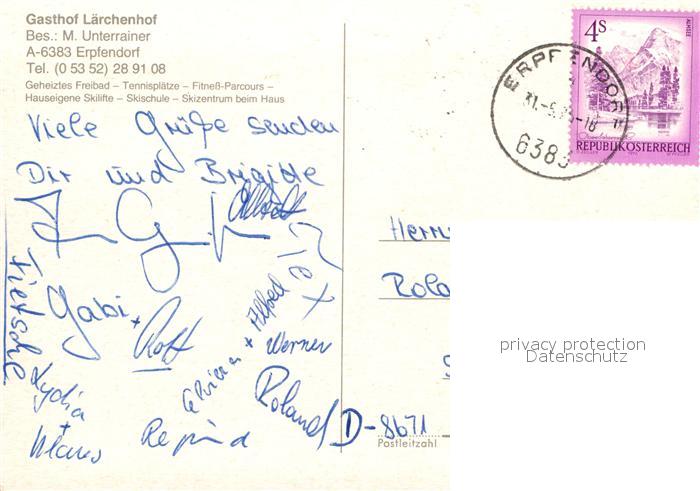 Gasthof Lärchenhof
Bes.: M. Unterrainer
A-6383 Erpfendorf
Tel. (0 53 52) 28 91 08
Geheiztes Freibad – Tennisplätze – Fitneß-Parcours –
Hauseigene Skilifte – Skischule – Skizentrum beim Haus
Viele Grüße senden
Dir und Brigitte
Fietsche
Gabi +
Rolf
+ Alfred
Werner
Lydia
+
Klaus
Roland
4S
ALMSEE
REPUBLIK ÖSTERREICH
ERPFENDORF
6383
Herrn
Rola
D-8671
Postleitzahl
privacy protection
Datenschutz